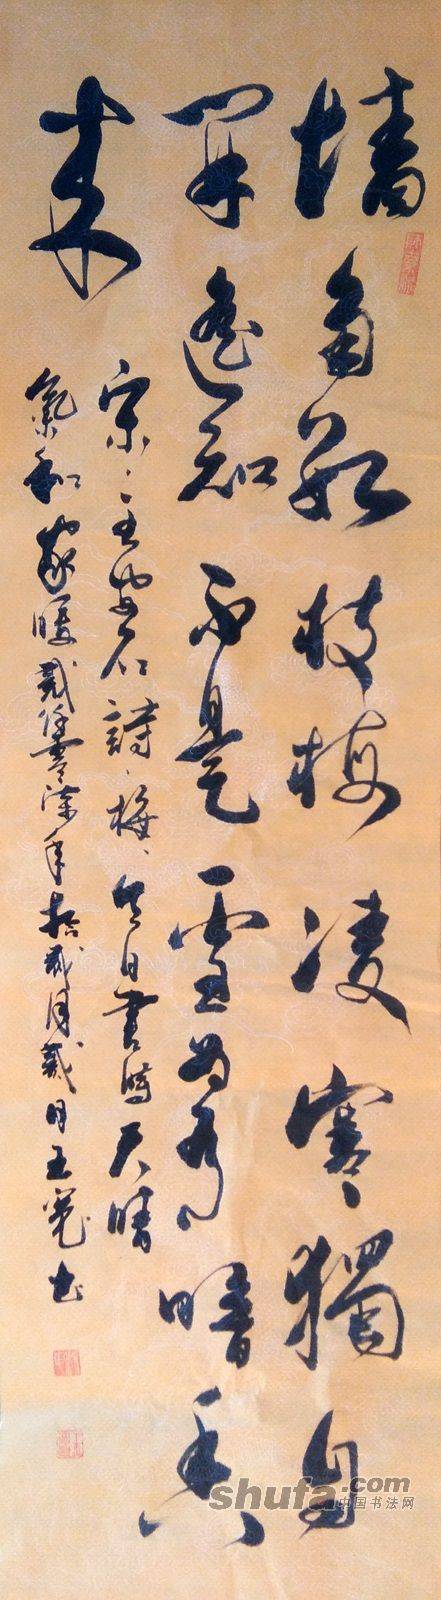 墙角数枝梅凌寒獨自
開遥知不是雪为有暗香
来
宋王安石詩梅今日書時天晴
氣和家暖贰仟零柒年拾贰月贰日王
shufa.com
中国书法网